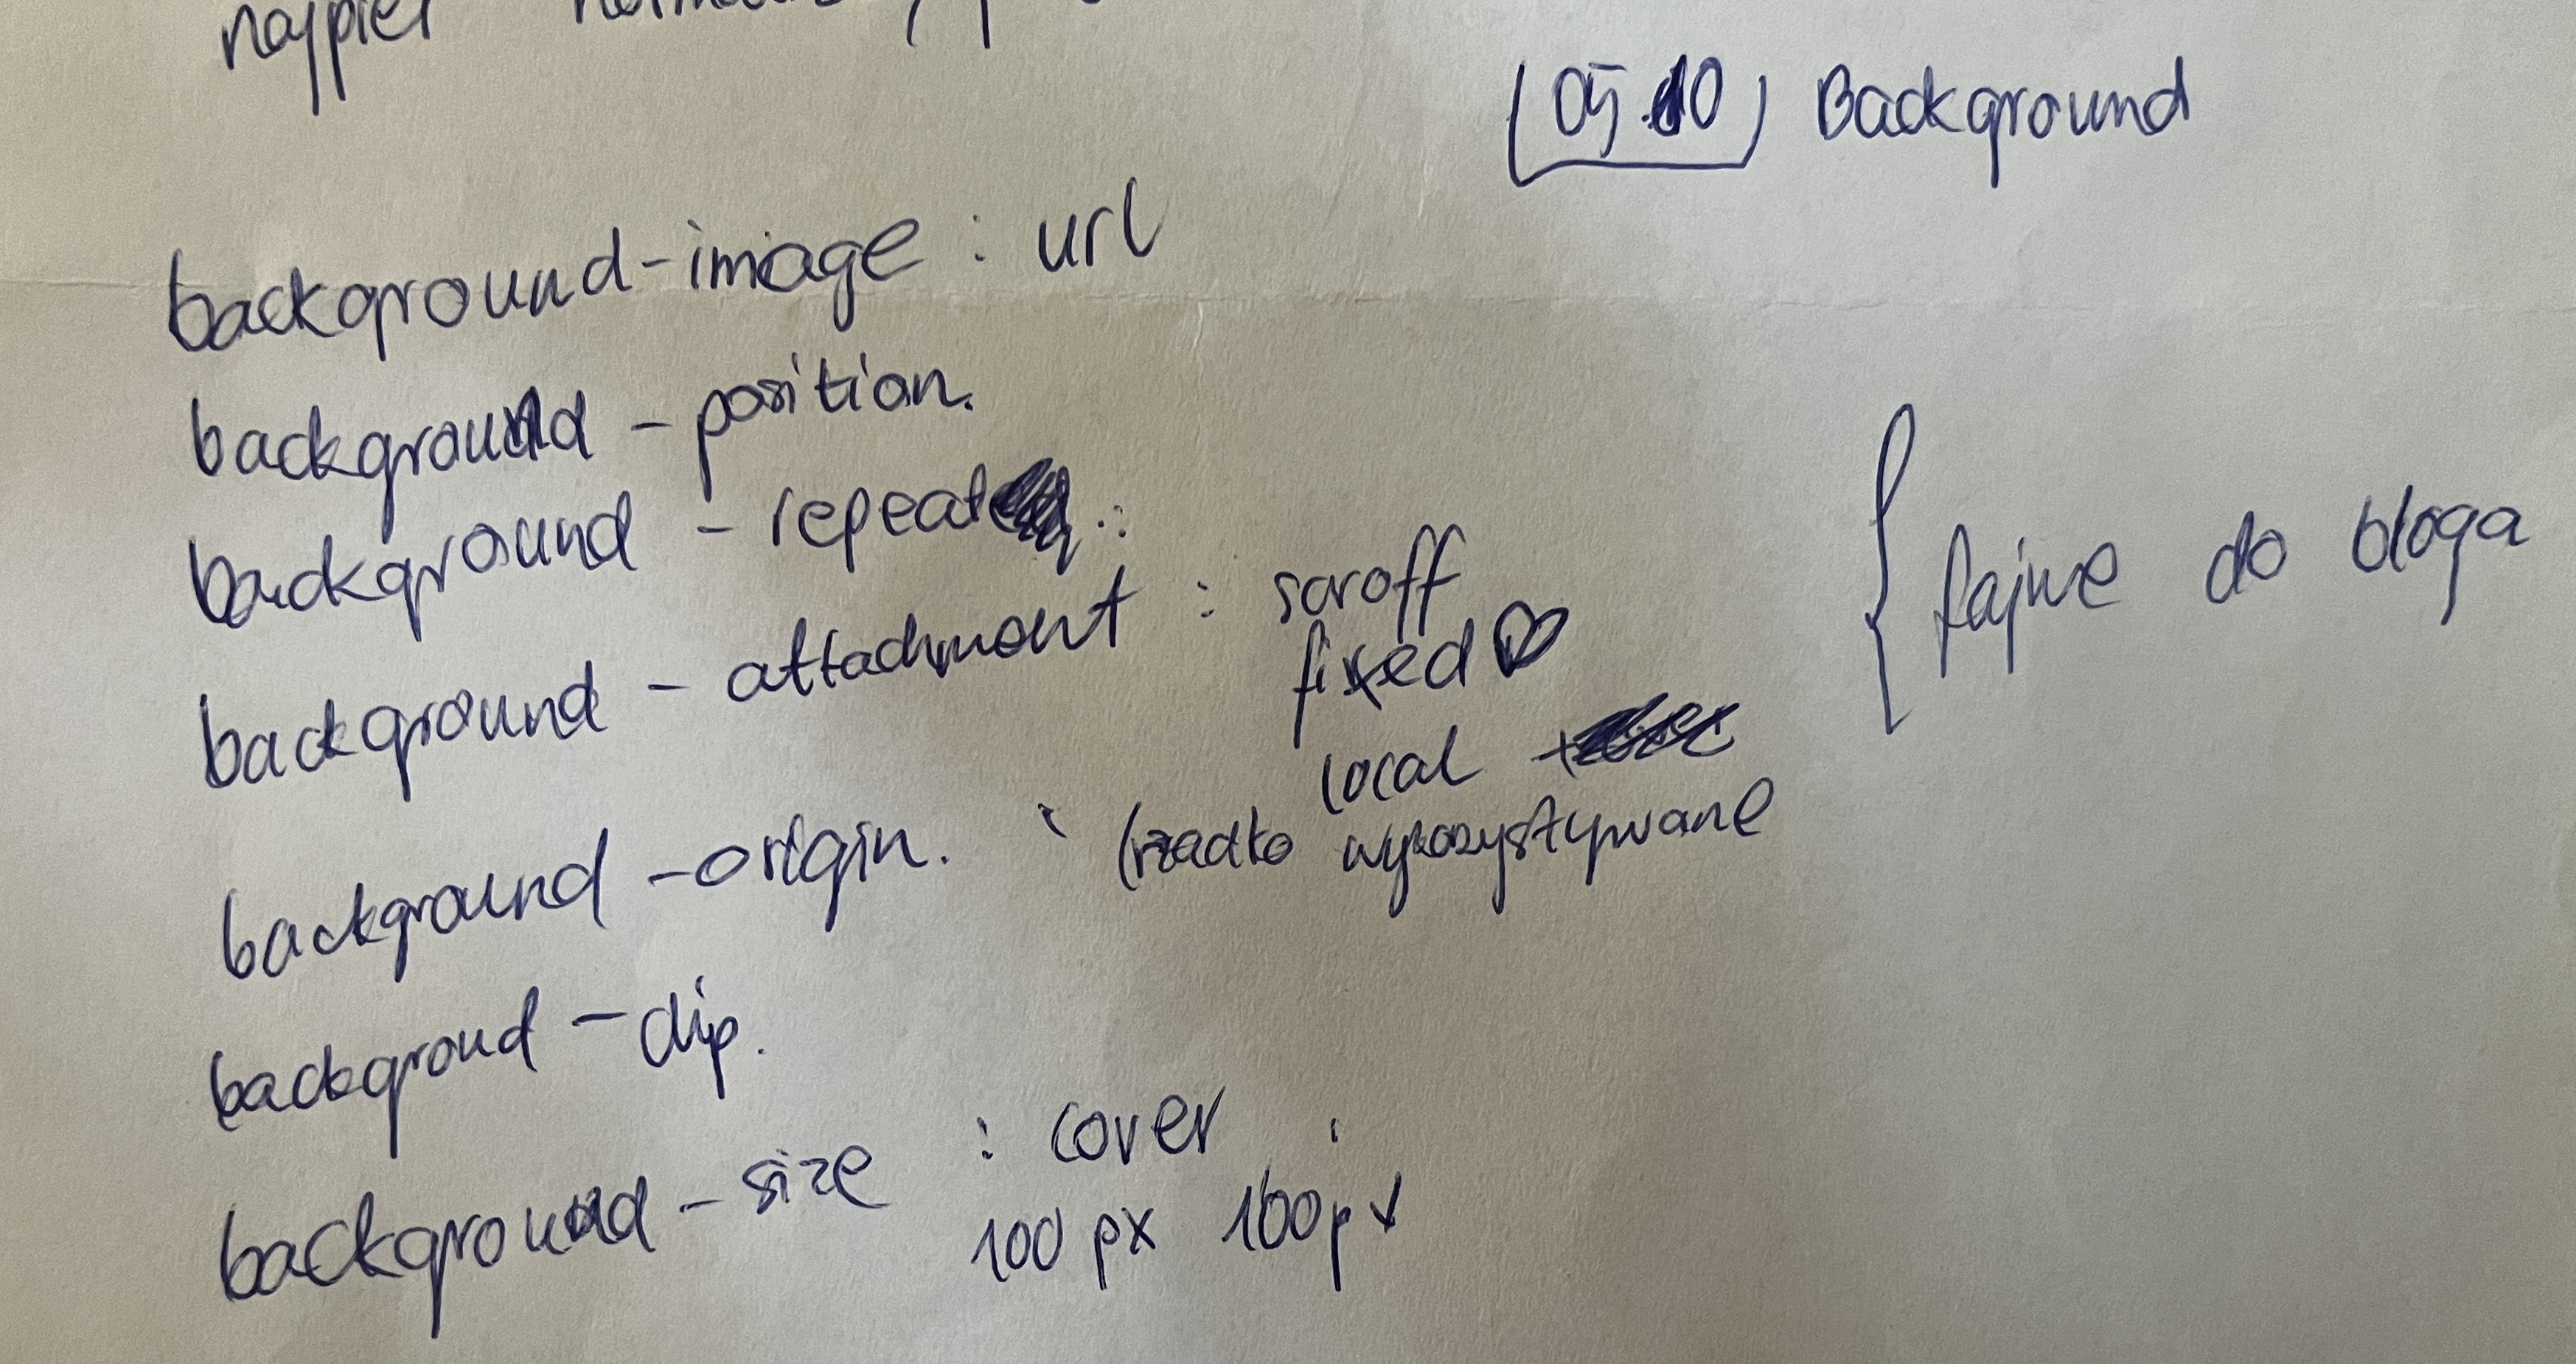 najpier
(05.10) Background
background-image : url
background - position.
background - repeat :
background - attachment : scroff
fixed ♡
local
{ fajne do bloga
background - origin. (rzadko wykozystywane
backgroud - clip.
background - size : cover ;
100 px 100px